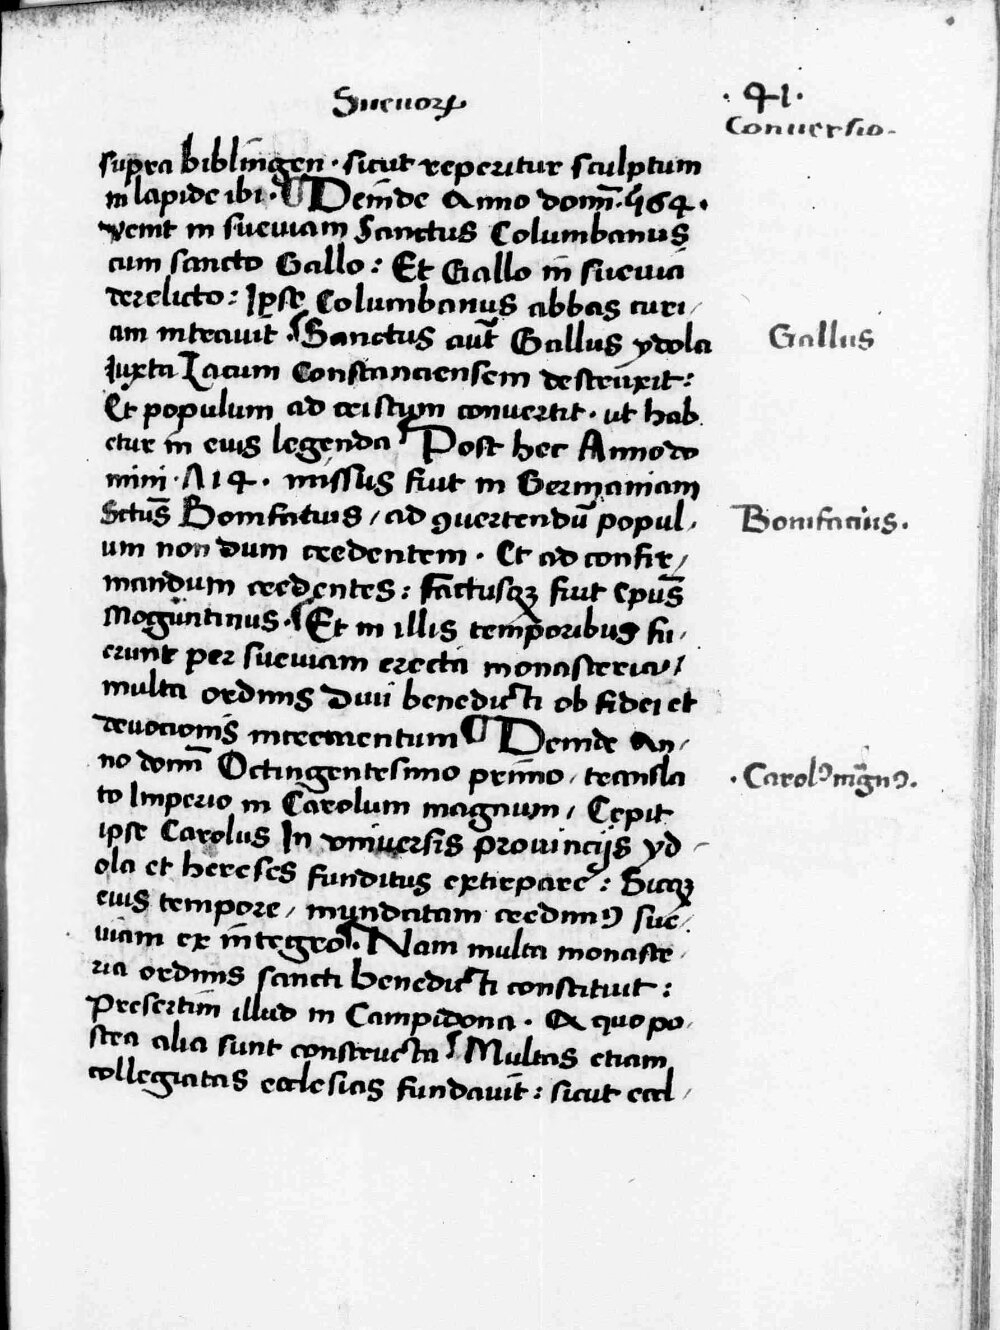 Sueuoꝝ
.41.
Conuersio.
supra biblingen . sicut reperitur sculptum
in lapide ibi . ¶ Deinde Anno domī . 564 .
venit in sueuiam Sanctus Columbanus
cum sancto Gallo : Et Gallo in sueuia
derelicto : Ipse Columbanus abbas curi/
am intrauit . ¶ Sanctus aut̄ Gallus ydola
Gallus
iuxta Lacum Constanciensem destruxit :
Et populum ad cristum conuertit . ut hab
etur in eius legenda ¶ Post hec Anno do
mini . 714 . missus fuit in Germaniam
Sctus̄ Bonifatius / ad ꝯuertendū popul/
Bonifacius .
um non dum credentem . Et ad confir/
mandum credentes : factusqꝫ fuit Epus̄
Moguntinus . ¶ Et in illis temporibus fu/
erunt per sueuiam erecta monasteria /
multa ordinis Diui benedicti ob fidei et
deuocionis incrementum ¶ Deinde An/
no domī Octingentesimo primo / transla
. Carolꝰ mgnꝰ .
to Imperio in Carolum magnum / Cepit
ipse Carolus In vniuersis prouincijs yd/
ola et hereses funditus extirpare : Sicqꝫ
eius tempore / mundatam credimꝰ sue/
uiam ex integro . ¶ Nam multa monaste/
ria ordinis sancti benedicti constituit :
Presertim illud in Campidona . A quo po/
stea alia sunt constructa ¶ Multas etiam
collegiatas ecclesias fundauit : sicut eccl/